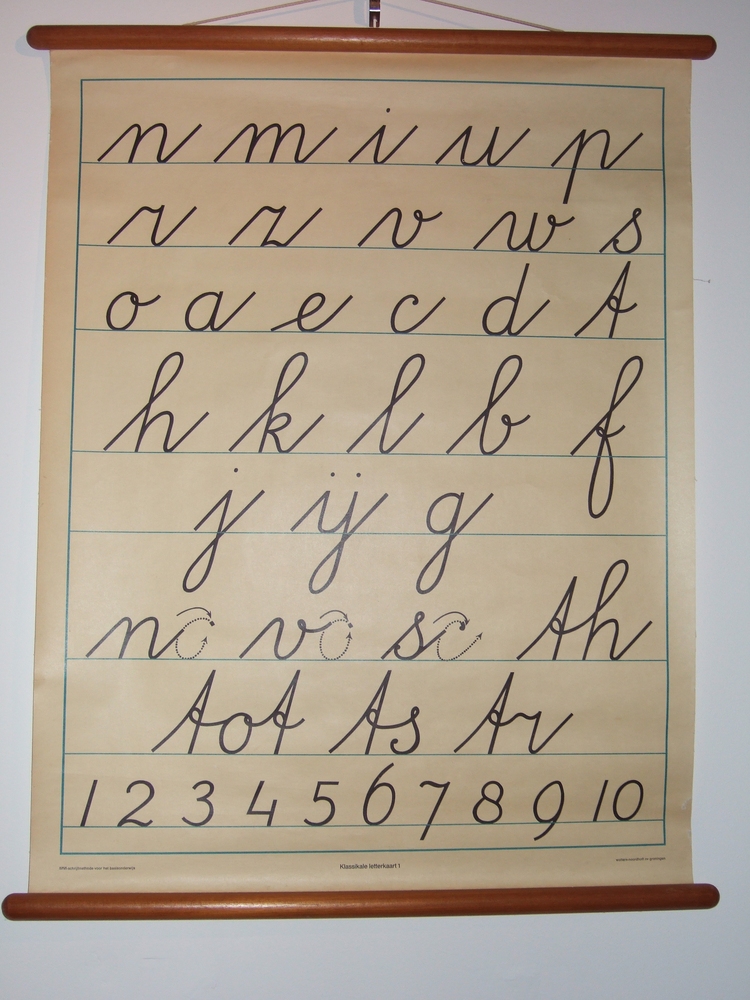 n m i u p
r z v w s
o a e c d t
h k l b f
j ij g
n v sc th
tot ts tr
1 2 3 4 5 6 7 8 9 10
Klassikale letterkaart 1